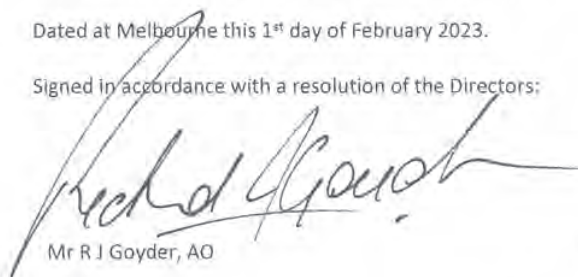 Dated at Melbourne this 1st day of February 2023.
Signed in accordance with a resolution of the Directors:
Mr R J Goyder, AO